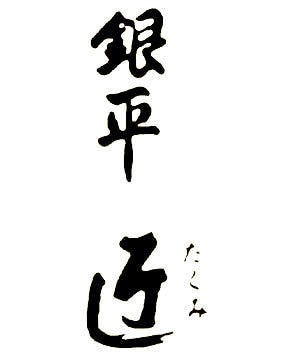 銀平
匠
たくみ